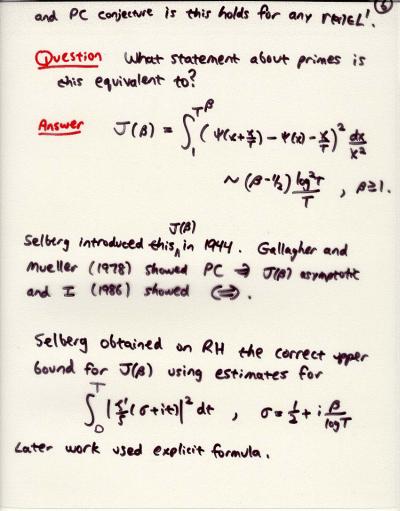 6
and PC conjecture is this holds for any r(α)∈L'.
Question What statement about primes is
this equivalent to?
Answer J(β) = ∫_1^{T^β} (ψ(x+x/T) − ψ(x) − x/T)^2 dx/x^2
~ (β−1/2) log^2 T / T , β≥1.
J(β)
Selberg introduced this ∧ in 1944. Gallagher and
Mueller (1978) showed PC ⇒ J(β) asymptotic
and I (1986) showed (⇔).
Selberg obtained on RH the correct upper
bound for J(β) using estimates for
∫_0^T |ζ'/ζ (σ+it)|^2 dt , σ = 1/2 + i β/log T
Later work used explicit formula.